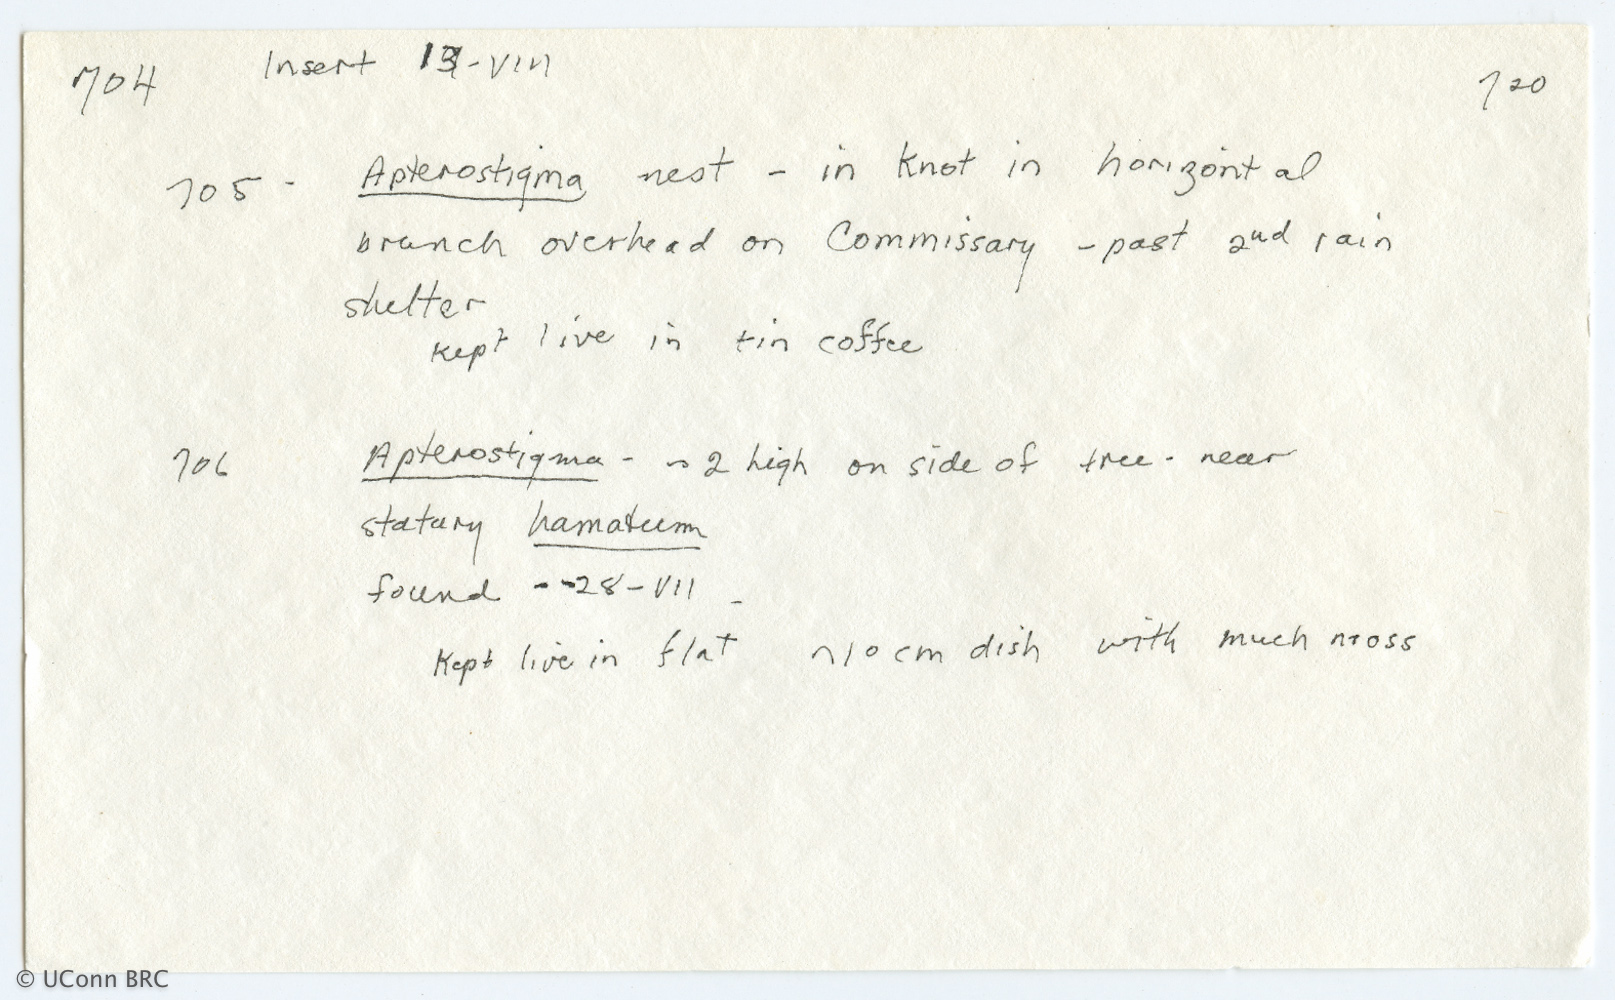 704 Insert 13-VIII 720
705 - Apterostigma nest - in knot in horizontal
branch overhead on Commissary - past 2nd rain
shelter
Kept live in tin coffee
706 Apterostigma - ~2 high on side of tree - near
statary hamatum
found -- 28-VII
Kept live in flat ~10 cm dish with much moss
© UConn BRC